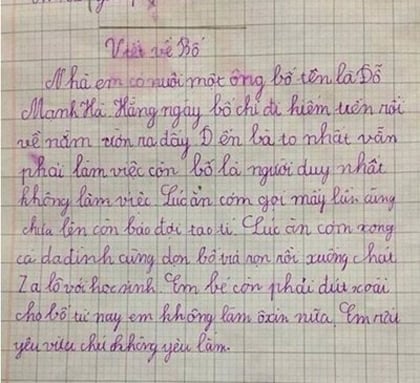 Viết về Bố
Nhà em có nuôi một ông bố tên là Đỗ
Mạnh Hà. Hằng ngày bố chỉ đi kiếm tiền rồi
về nằm ườn ra đấy
to nhất vẫn
phải làm việc còn bố là người duy nhất
không làm việc Lúc ăn cơm gọi mấy lần cũng
chưa lên còn bảo đợi tao tí. Lúc ăn cơm xong
cả da đình cùng dọn bố vừa rọn rồi xuống chat
Za lô với học sinh. Em bé còn phải đút xoài
cho bố từ nay em không làm ôxin nữa. Em rất
yêu
không yêu lắm.